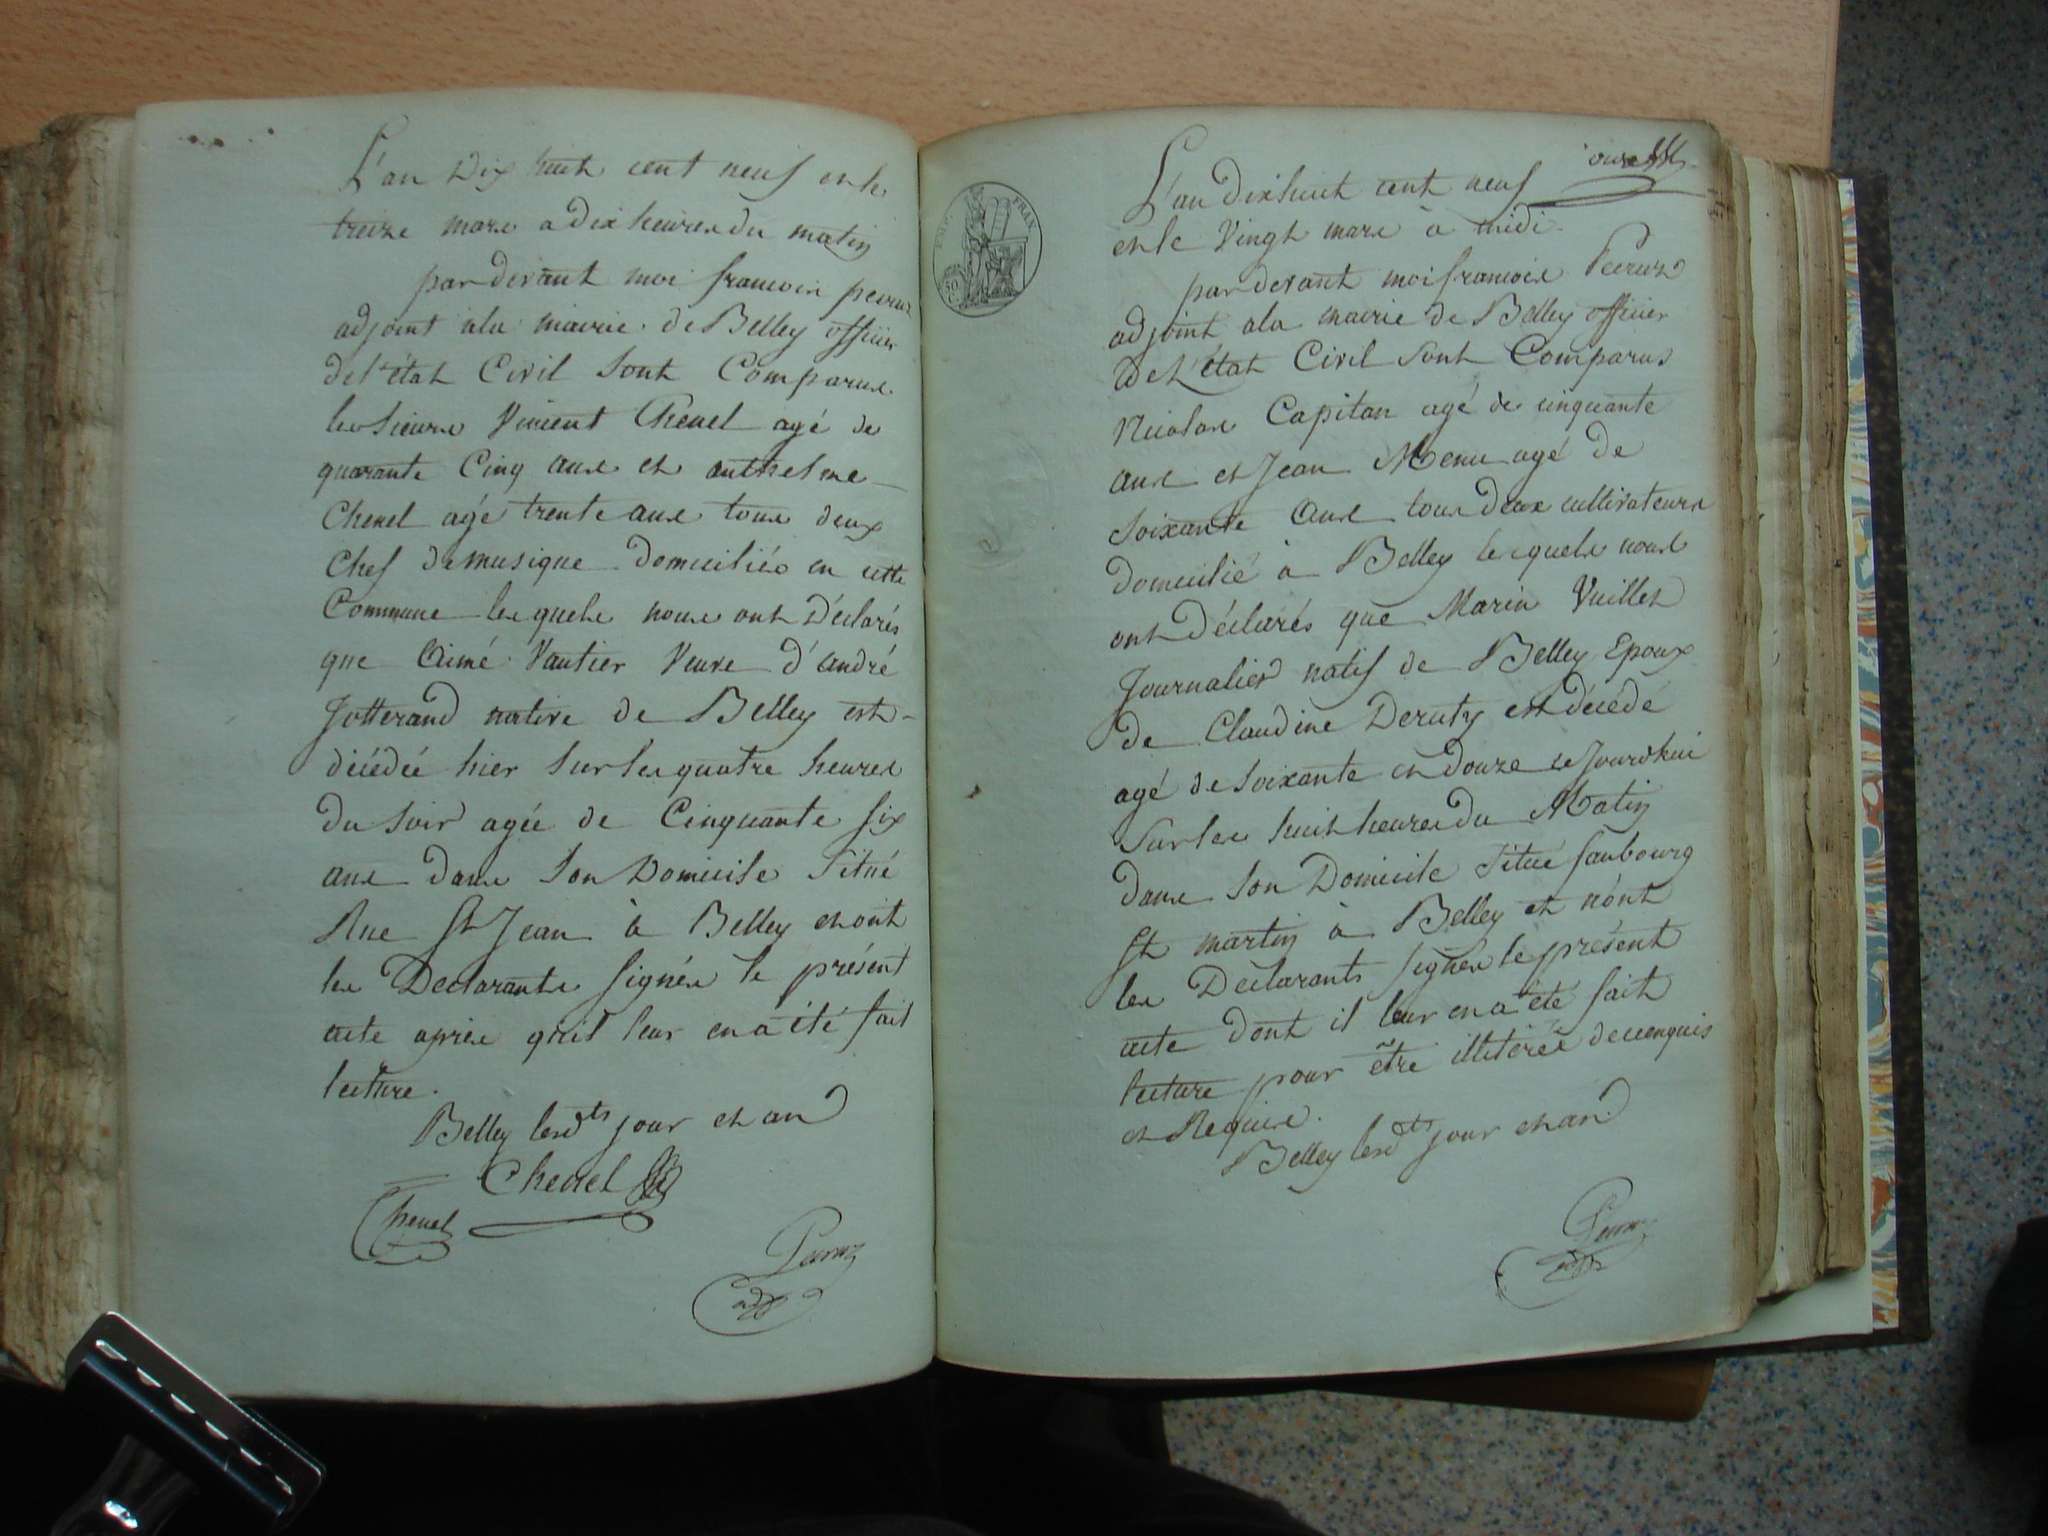 L'an Dix huit cent neuf et le
treize mars a Dix heures du matin
par devant moi francois peeruz
adjoint ala mairie de Belley officier
de l'état Civil sont Comparus
les Sieurs Vincent Chenel agé de
quarante Cinq ans et anthelme
Chenel agé trente ans tous deux
Chef de musique domiciliés en cette
Commune lesquels nous ont Déclarés
que Aimé Vautier Veuve d'andré
Jotterand native de Belley est
décédée hier sur les quatre heures
du soir agée de Cinquante six
ans dans son Domicile situé
Rue St Jean à Belley et ont
les Declarants signés le présent
acte après qu'il leur en a été fait
lecture.
Belley lesdts jour et an
Chenel
Chenel
adj
EMP. FRAN.
50
L'an dix huit cent neuf
et le Vingt mars à midi
par devant moi francois Peeruz
adjoint ala mairie de Belley officier
de L'état Civil sont Comparus
Nicolas Capitan agé de cinquante
ans et Jean Menu agé de
soixante ans tous deux cultivateurs
domicilié à Belley lesquels nous
ont déclarés que Marin Vuillet
Journalier natif de Belley Epoux
de Claudine Deruty est décédé
agé de soixante et douze ce Jourdhui
sur les huit heures du Matin
dans son Domicile situé faubourg
St martin à Belley et n'ont
les Déclarants signés le présent
acte dont il leur en a été fait
lecture pour être illitérés de ce enquis
et Requis.
Belley lesdts jour et an